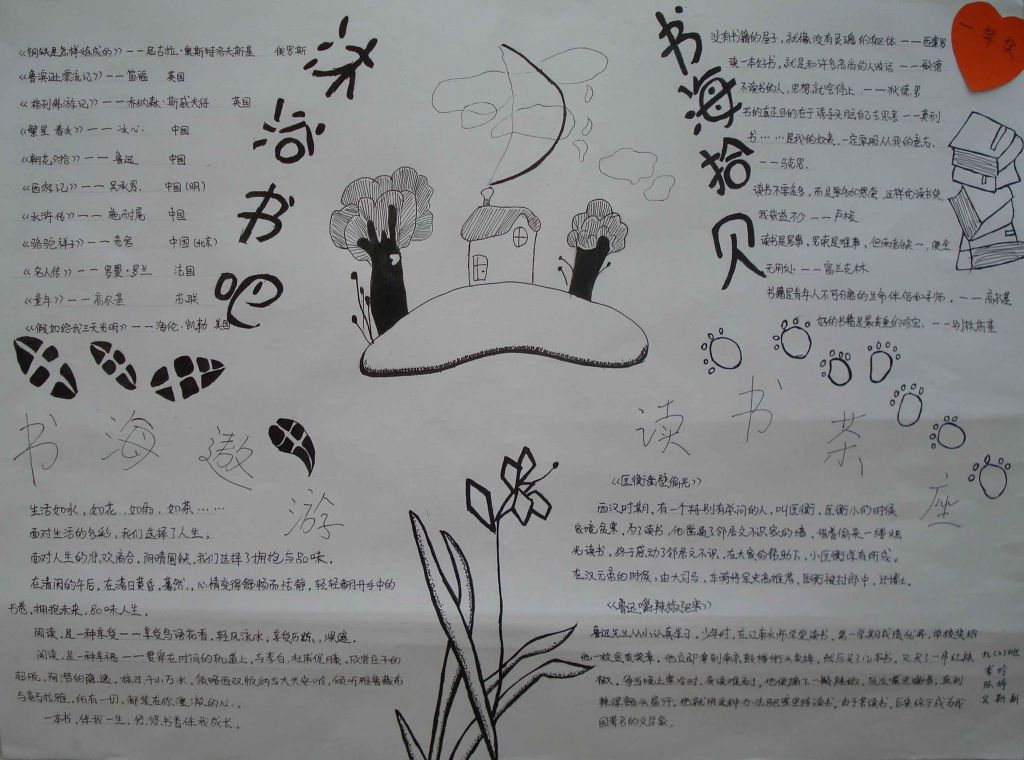 来询书吧
《钢铁是怎样炼成的》——尼古拉·奥斯特洛夫斯基 俄罗斯
《鲁滨逊漂流记》——笛福 英国
《格列佛游记》——乔纳森·斯威夫特 英国
《繁星 春水》——冰心 中国
《朝花夕拾》——鲁迅 中国
《西游记》——吴承恩 中国(明)
《水浒传》——施耐庵 中国
《骆驼祥子》——老舍 中国(北京)
《名人传》——罗曼·罗兰 法国
《童年》——高尔基 苏联
《假如给我三天光明》——海伦·凯勒 美国
书海拾贝
没有书籍的屋子，就像没有灵魂的躯体——西塞罗
读一本好书，就是和许多高尚的人谈话——歌德
不读书的人，思想就会停止。——狄德罗
书的真正目的在于诱导头脑自己去思考——莫利
书……是我的奴隶，一定要服从我的意志，
——马克思
读书不要贪多，而是要多加思索，这样的读书使
我获益不少——卢梭
读书是易事，思索是难事，但两者缺一，便全
无用处——富兰克林
书籍是青年人不可分离的生命伴侣和导师。——高尔基
好的书籍是最贵重的珍宝、——别林斯基
一等奖
书海遨游
生活如水，如花，如雨，如茶……
面对生活的多彩，我们选择了人生；
面对人生的悲欢离合，阴晴圆缺，我们选择了拥抱与品味。
在清闲的午后，在落日黄昏，蓦然，心情变得舒畅而恬静，轻轻翻开手中的
书卷，拥抱未来，品味人生。
阅读，是一种享受——享受鸟语花香，轻风流水；享受历练，深邃。
阅读，是一种幸福——贯穿在时间的轨道上，与李白、杜甫促膝，欣赏庄子的
超脱，陶潜的隐逸，涉过千山万水，领略西双版纳与大兴安岭，倾听雅鲁藏布
与喜马拉雅，所有一切，都装在你澄澈的心。
一本书，伴我一生；悠悠书香伴我成长。
读书茶座
《匡衡凿壁偷光》
西汉时期，有一个特别有学问的人，叫匡衡，匡衡小的时候
家境贫寒，为了读书，他凿通了邻居文不识家的墙，借着偷来一缕烛
光读书，终于感动了邻居文不识，在大家的帮助下，小匡衡学有所成。
在汉元帝的时候，由大司马、车骑将军史高推荐，匡衡被封郎中，迁博士。
《鲁迅嚼辣椒驱寒》
鲁迅先生从小认真学习，少年时，在江南水师学堂读书，第一学期成绩优异，学校奖给
他一枚金质奖章，他立即拿到南京鼓楼街头卖掉，然后买了几本书，又买了一串红辣
椒，每当晚上寒冷时，夜读难耐，他便摘下一颗辣椒，放在嘴里嚼着，直到
辣得额头冒汗，他就用这种办法驱寒坚持读书，由于苦读书，后来终于成为我
国著名的文学家。
九(2)班